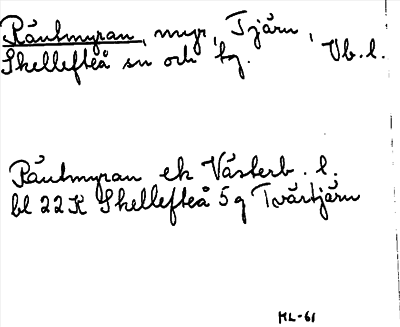 Räntmyran, myr, Tjärn, Vb. l.
Skellefteå sn och tg.
Räntmyran ek Västerb. l.
bl 22K Skellefteå 5g Tvärtjärn
ML-61